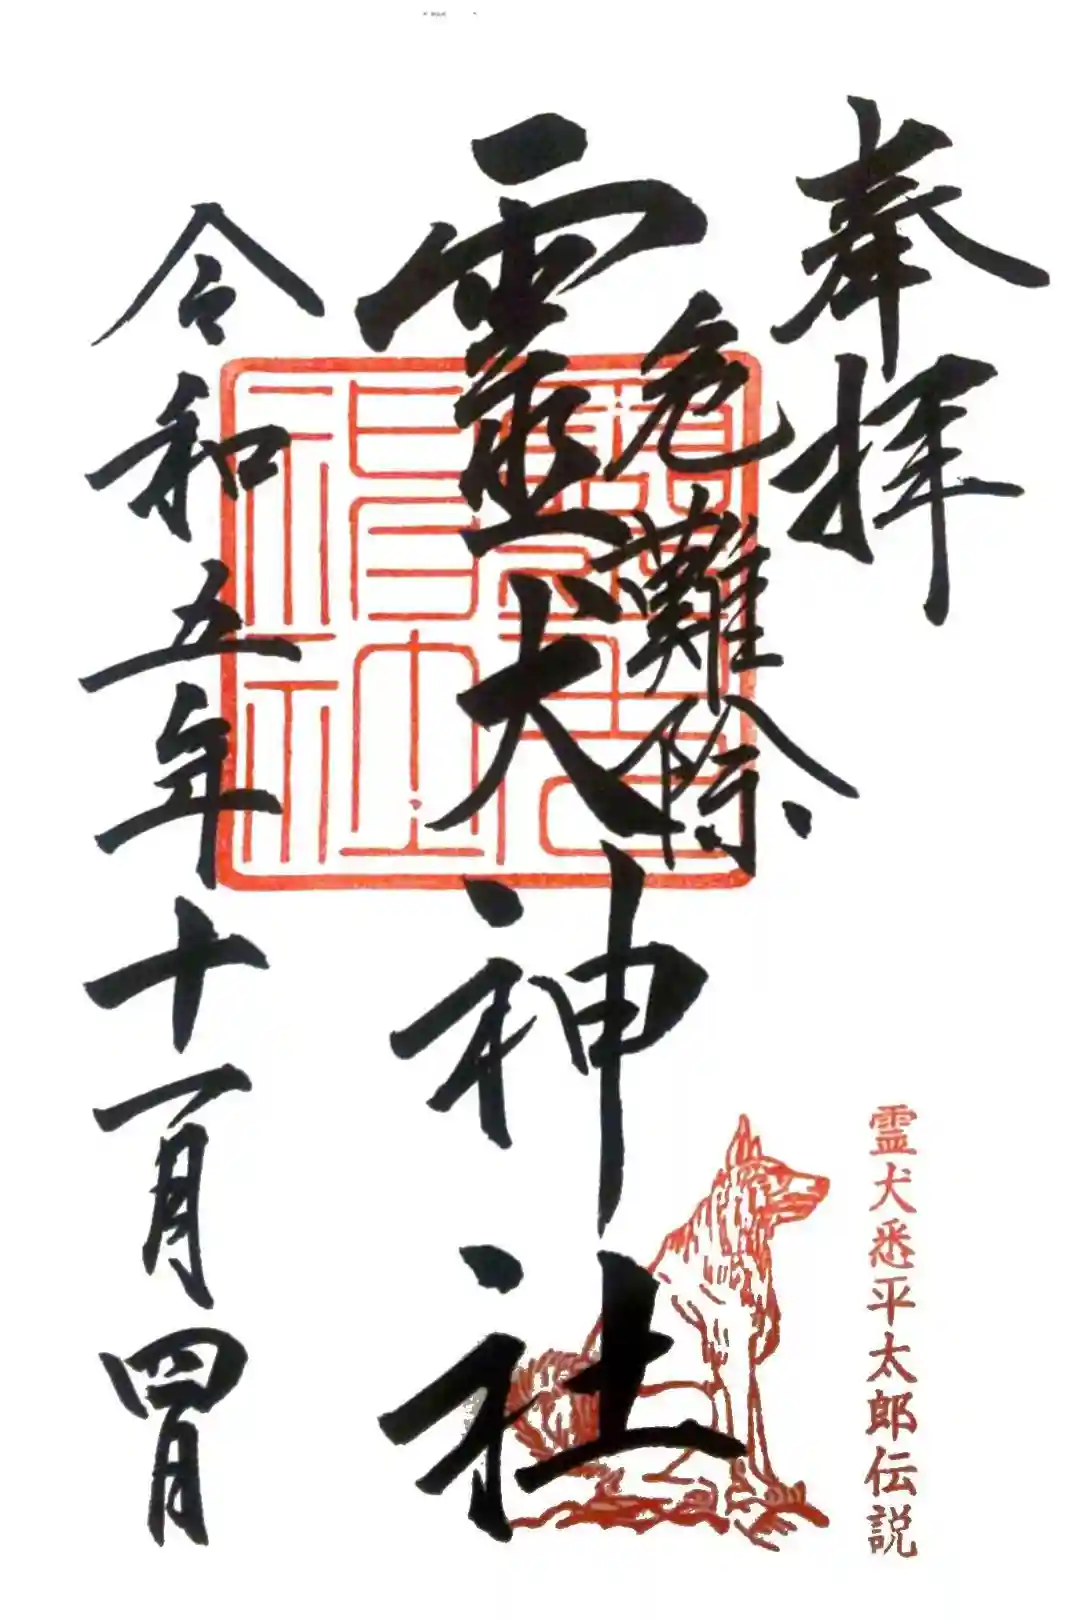 奉拝
危難除
靈犬神社
令和五年十一月四日
霊犬悉平太郎伝説